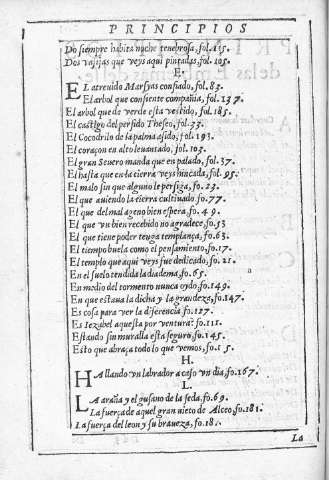 PRINCIPIOS
Do siempre habita noche tenebrosa, fol. 115.
Dos vasijas que veys aqui pintadas, fol. 105.
E.
EL atreuido Marsyas confiado, fol. 83.
El arbol que consiente compañia, fol. 137.
El arbol que de verde esta vestido, fol. 185.
El castigo del perfido Theseo, fol. 33.
El Cocodrilo de la palma asido, fol. 193.
El coraçon en alto leuantado, fol. 103.
El gran Seuero manda que en palado, fol. 37.
El hasta que en la tierra veys hincada, fol. 95.
El malo sin que alguno le persiga, fo. 23.
El que auiendo la tierra cultiuado, fo. 77.
El que del mal ageno bien espera, fo. 49.
El que vn bien recebido no agradece, fo. 53
El que tiene poder tenga templança, fo. 63.
El tiempo buela como el pensamiento, fo. 17.
El templo que aqui veys fue dedicado, fo. 21.
En el suelo tendida la diadema, fo. 65.
En medio del tormento nunca oydo, fo. 149.
En que estaua la dicha y la grandeza, fo. 147.
Es cosa para ver la diferencia, fo. 127.
Es Iezabel aquesta por ventura? fo. 111.
Estando sin muralla esta seguro, fo. 145.
Esto que abraça todo lo que vemos, fo. 15.
H.
HAllando vn labrador a caso vn dia, fo. 167.
L.
LA araña y el gusano de la seda, fo. 69.
La fuerça de aquel gran nieto de Alceo, fo. 181.
La fuerça del leon y su braueza, fo. 18
La